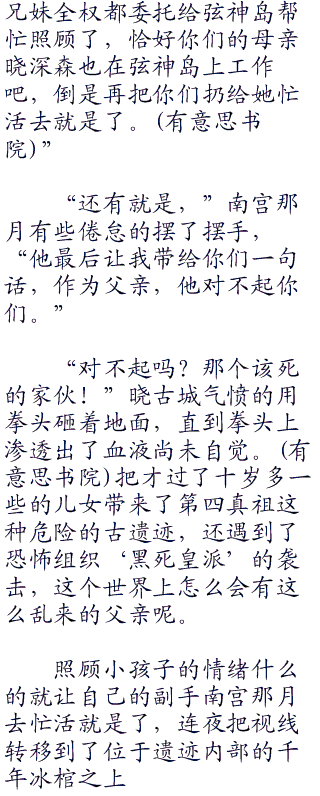 兄妹全权都委托给弦神岛帮
忙照顾了，恰好你们的母亲
晓深森也在弦神岛上工作
吧，倒是再把你们扔给她忙
活去就是了。(有意思书
院)”
“还有就是，”南宫那
月有些倦怠的摆了摆手，
“他最后让我带给你们一句
话，作为父亲，他对不起你
们。”
“对不起吗？那个该死
的家伙！”晓古城气愤的用
拳头砸着地面，直到拳头上
渗透出了血液尚未自觉。(有
意思书院)把才过了十岁多一
些的儿女带来了第四真祖这
种危险的古遗迹，还遇到了
恐怖组织‘黑死皇派’的袭
击，这个世界上怎么会有这
么乱来的父亲呢。
照顾小孩子的情绪什么
的就让自己的副手南宫那月
去忙活就是了，连夜把视线
转移到了位于遗迹内部的千
年冰棺之上